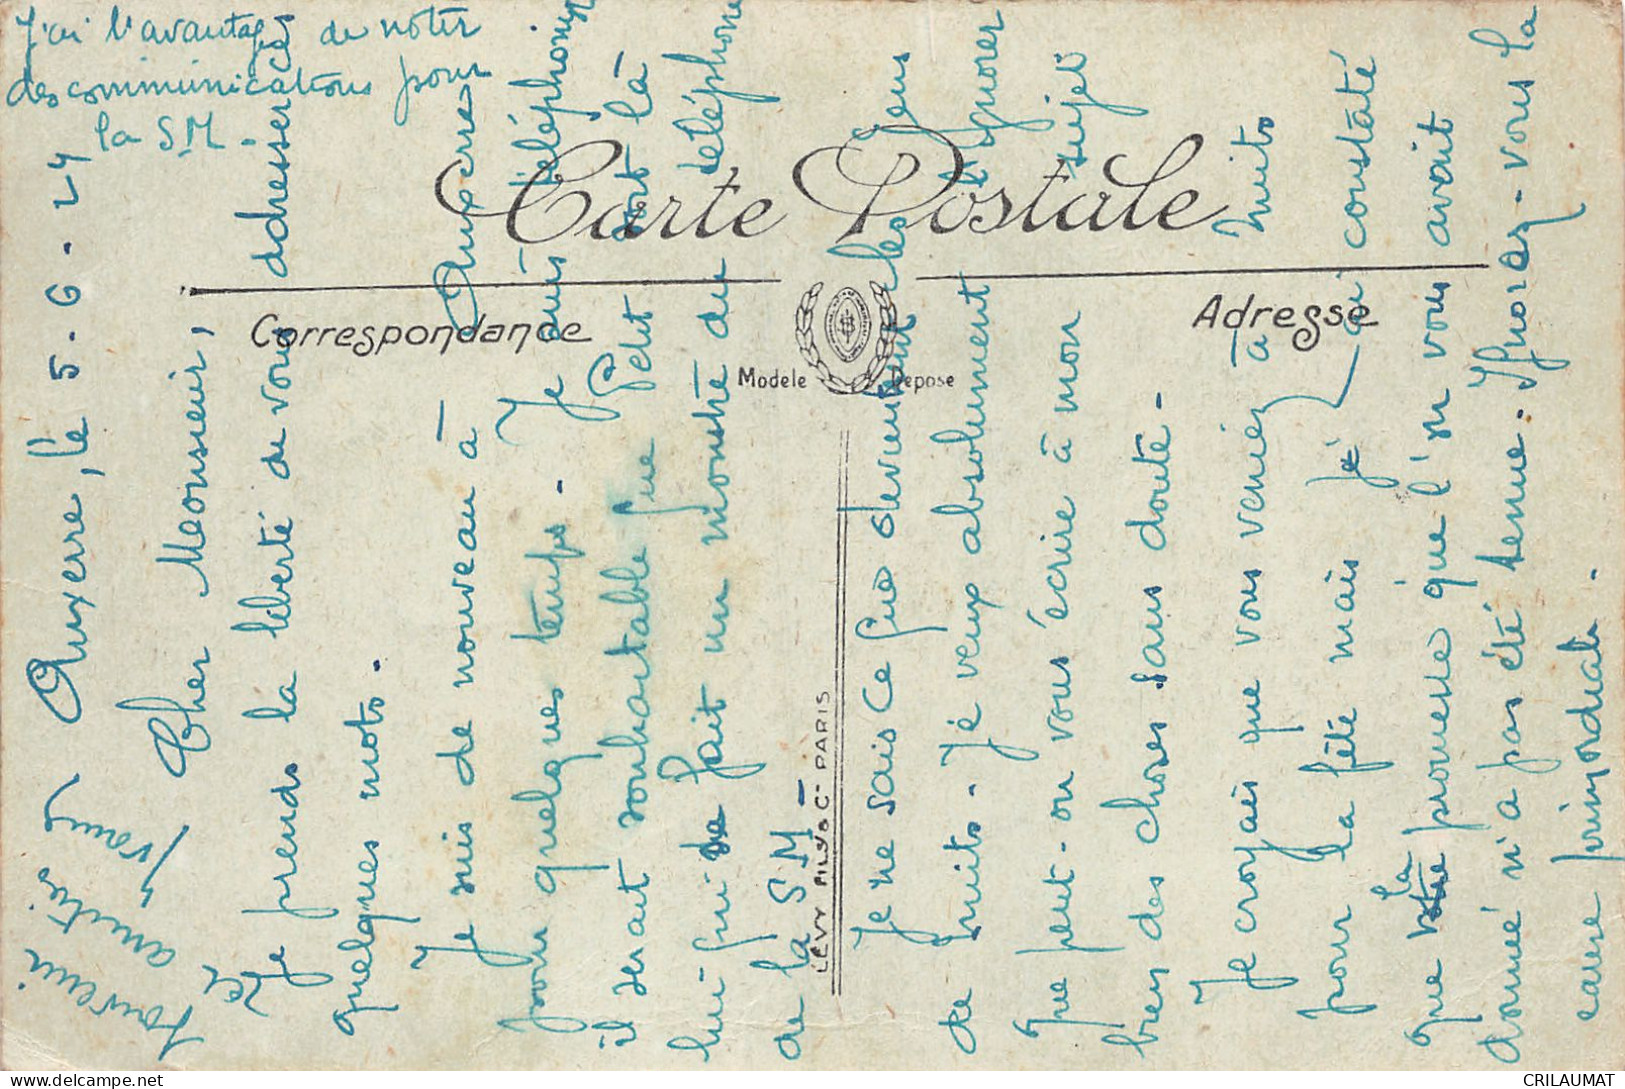 J'ai l'avantage de noter
des communications pour
la S.M.
Auxerre, le 5-6-24
Cher Monsieur,
Je prends la liberté de vous adresser ces
quelques mots.
Je suis de nouveau à Auxerre
pour quelques temps. Je suis téléphoniste
il serait souhaitable que Petit soit là
lui qui fait un monstre du téléphone
de la S M
Je ne sais ce que deviennent les gens
de Nuits. Je veux absolument l'ignorer
que peut-on vous écrire à mon sujet
bien des choses sans doute -
Je croyais que vous veniez à Nuits
pour la fête mais j'ai constaté
que la promesse que l'on vous avait
donné n'a pas été tenue. Ignorez-vous la
cause primordiale.
Souvenir
et amitié
Carte Postale
Correspondance
Adresse
Modèle Déposé
LÉVY Fils & Cie PARIS
delcampe.net
CRILAUMAT